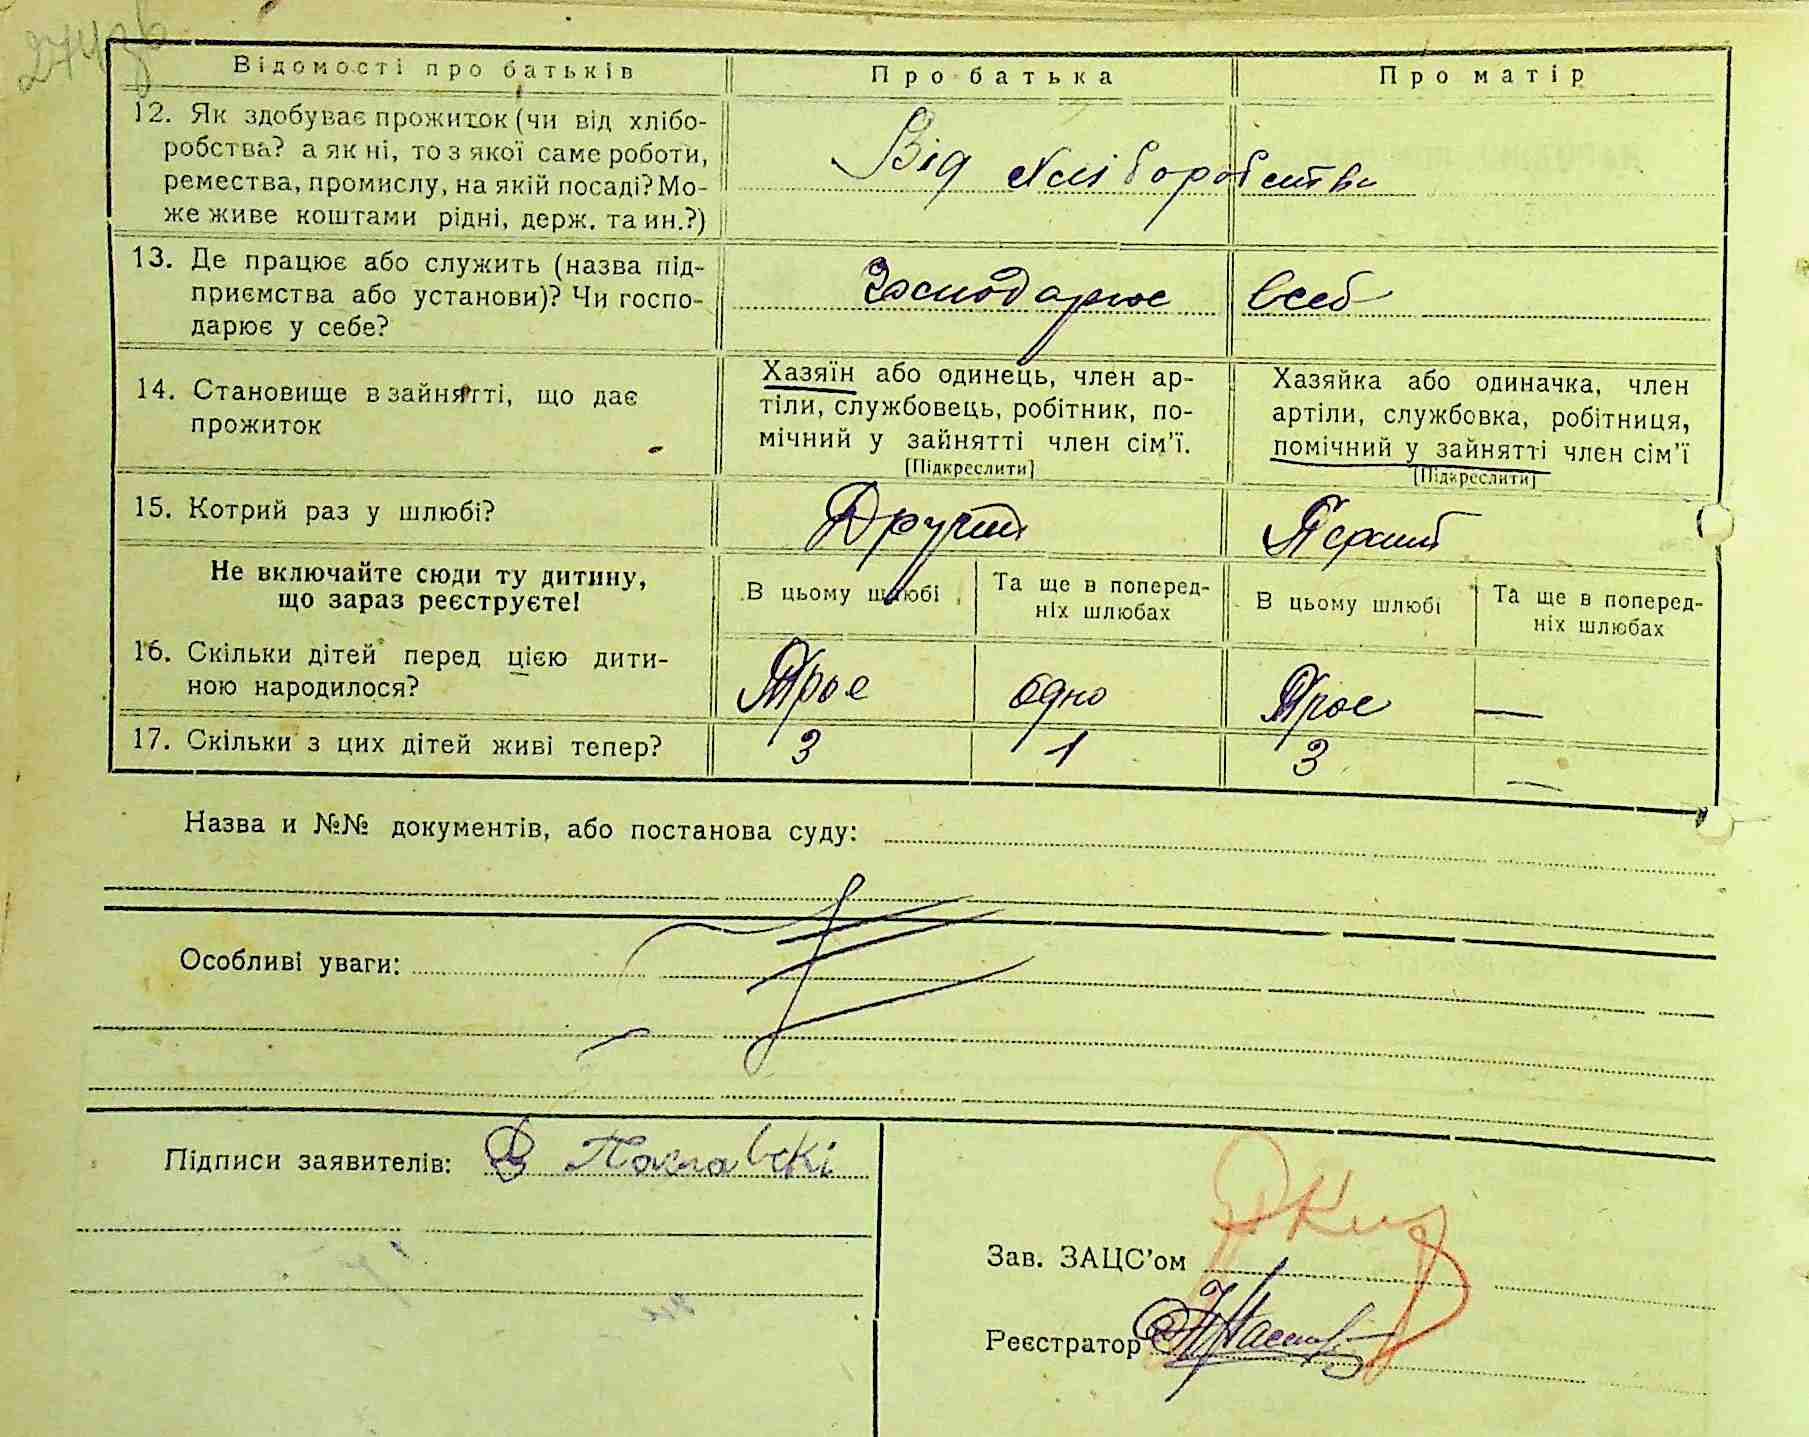 274зв
Відомості про батьків Про батька Про матір
12. Як здобуває прожиток (чи від хлібо-
робства? а як ні, то з якої саме роботи,
ремества, промислу, на якій посаді? Мо-
же живе коштами рідні, держ. та ин.?)
Від хліборобства
13. Де працює або служить (назва під-
приємства або установи)? Чи госпо-
дарює у себе?
Господарює всебе
14. Становище в зайнятті, що дає
прожиток
Хазяїн або одинець, член ар-
тіли, службовець, робітник, по-
мічний у зайнятті член сім'ї.
[Підкреслити]
Хазяйка або одиначка, член
артіли, службовка, робітниця,
помічний у зайнятті член сім'ї
[Підкреслити]
15. Котрий раз у шлюбі? Другий Перший
Не включайте сюди ту дитину,
що зараз реєструєте!
В цьому шлюбі
Та ще в поперед-
ніх шлюбах
В цьому шлюбі
Та ще в поперед-
ніх шлюбах
16. Скільки дітей перед цією дити-
ною народилося?
Троє одно Троє —
17. Скільки з цих дітей живі тепер? 3 1 3 —
Назва и №№ документів, або постанова суду:
Особливі уваги:
Підписи заявителів: В
Зав. ЗАЦС'ом
Реєстратор